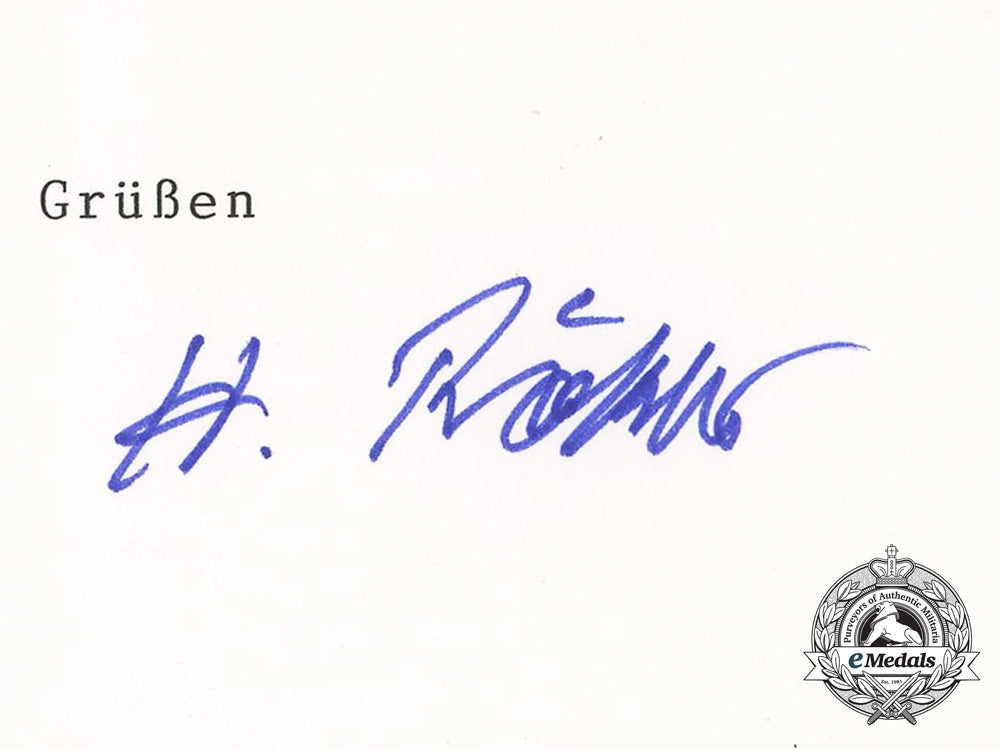 Grüßen
H.
Purveyors of Authentic Militaria
eMedals
Est. 1981